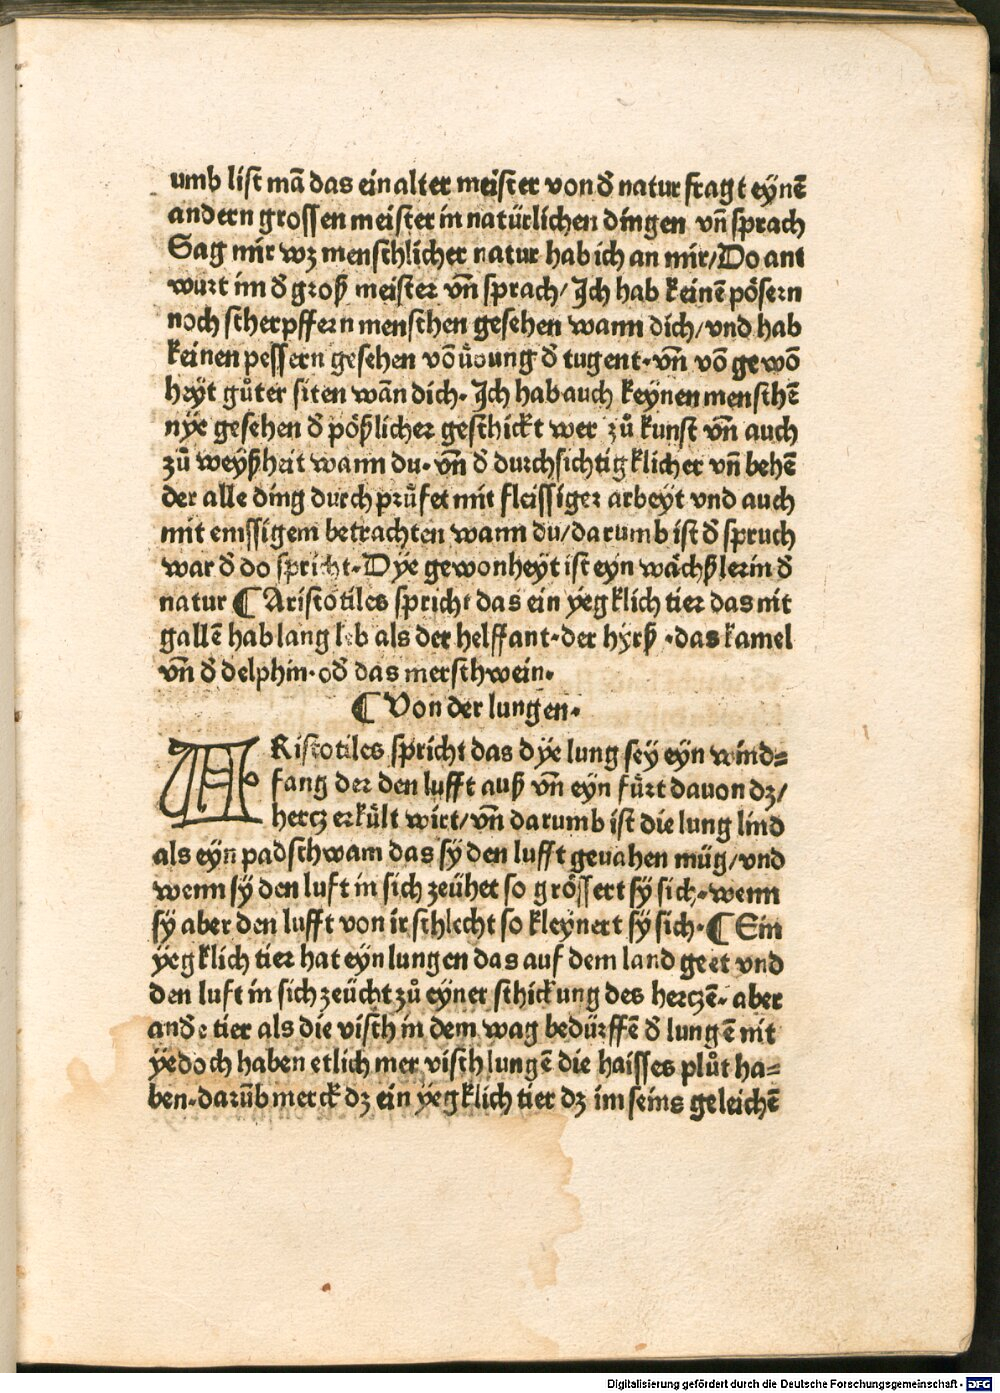 umb list mā das ein alter meister von đ natur fragt eynē
andern grossen meister in natürlichen dingen vn̄ sprach
Sag mir wz menschlicher natur hab ich an mir/Do ant
wurt im đ groß meister vn̄ sprach/ Jch hab keinē pösern
noch scherpffern menschen gesehen wann dich/vnd hab
keinen pessern gesehen vō übung đ tugent·vn̄ vō gewō
heyt gůter siten wān dich· Jch hab auch keynen menschē
nye gesehen đ pößlicher geschickt wer zů kunst vn̄ auch
zů weyßheit wann du·vn̄ đ durchsichtigklicher vn̄ behē
der alle ding durch průfet mit fleissiger arbeyt vnd auch
mit emssigem betrachten wann du/darumb ist đ spruch
war đ do spricht·Dye gewonheyt ist eyn wächßlerin đ
natur ¶ Aristotiles spricht das ein yegklich tier das nit
gallē hab lang leb als der helffant·der hyrß ·das kamel
vn̄ đ delphin·ođ das merschwein·
¶ Von der lungen·
ARistotiles spricht das dye lung sey eyn wind=
fang der den lufft auß vn̄ eyn fürt davon dz/
hertz erkült wirt/vn̄ darumb ist die lung lind
als eyn padschwam das sy den lufft gevahen müg/vnd
wenn sy den luft in sich zeühet so grössert sy sich·wenn
sy aber den lufft von ir schlecht so kleynert sy sich·¶ Ein
yegklich tier hat eyn lungen das auf dem land geet vnd
den luft in sich zeücht zů eyner schickung des hertzē·aber
andre tier als die visch in dem wag bedürffē đ lungē nit
yedoch haben etlich mer visch lungē die haisses plůt ha=
ben·darūb merck dz ein yegklich tier dz im seins geleichē
Digitalisierung gefördert durch die Deutsche Forschungsgemeinschaft - DFG